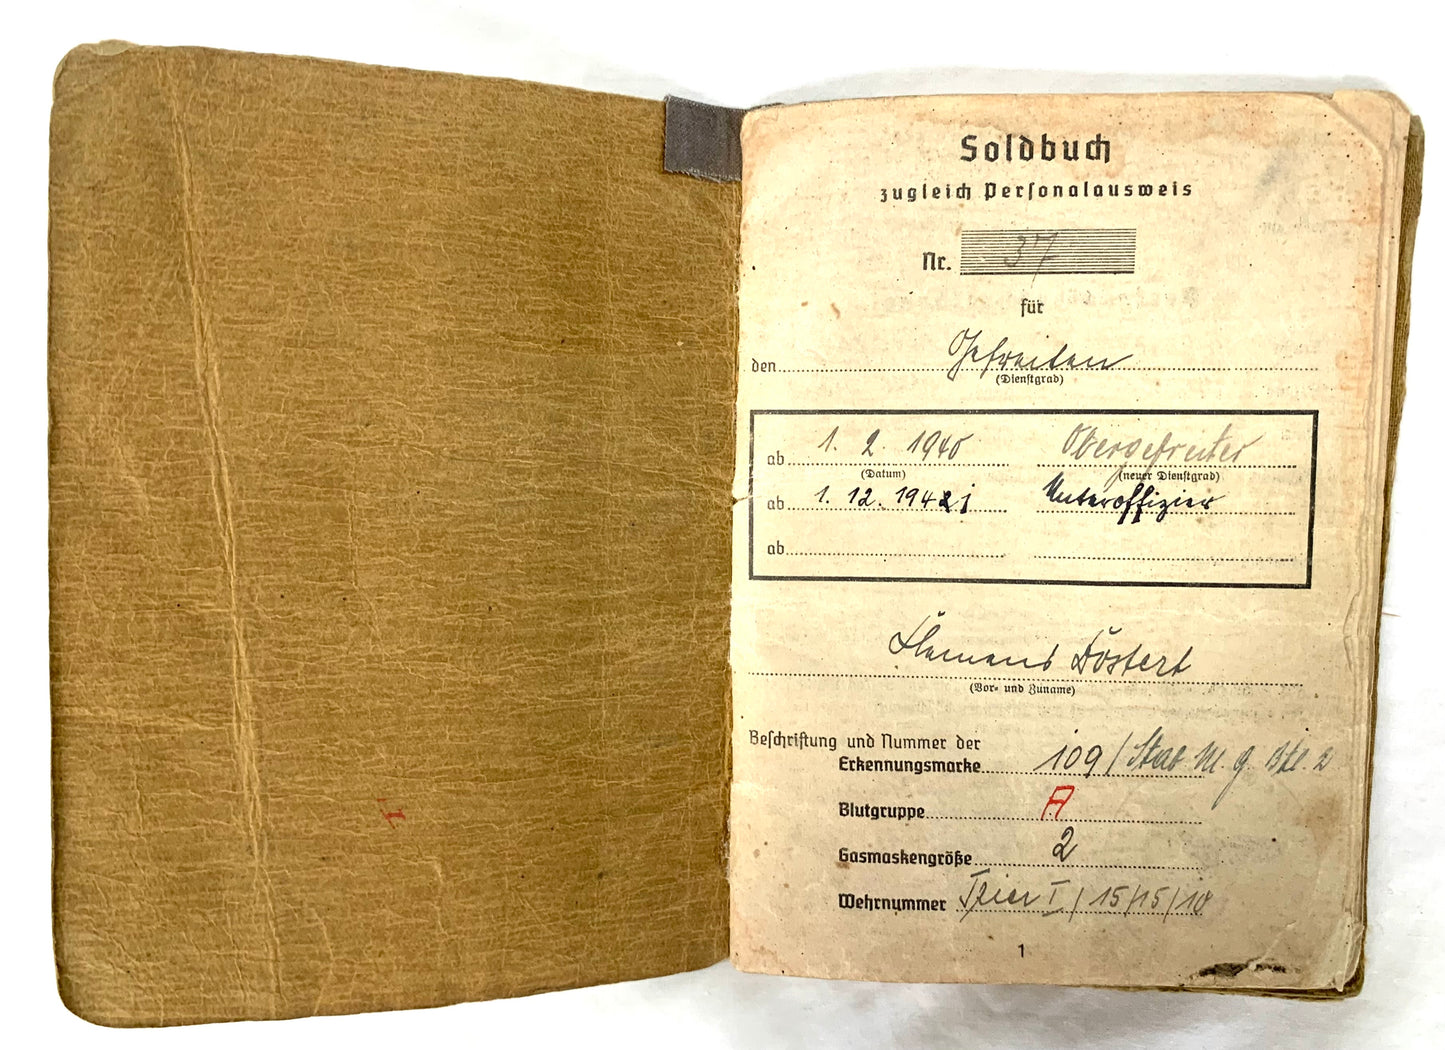 Soldbuch
zugleich Personalausweis
Nr. 37
für
den Gefreiten
(Dienstgrad)
ab 1. 2. 1940 Obergefreiter
(Datum) (neuer Dienstgrad)
ab 1. 12. 1942 Unteroffizier
ab
Klemens Döstert
(Vor- und Zuname)
Beschriftung und Nummer der
Erkennungsmarke 109 / Stab M. G. Btl. 2
Blutgruppe A
Gasmaskengröße 2
Wehrnummer Trier I / 15/15/10
1